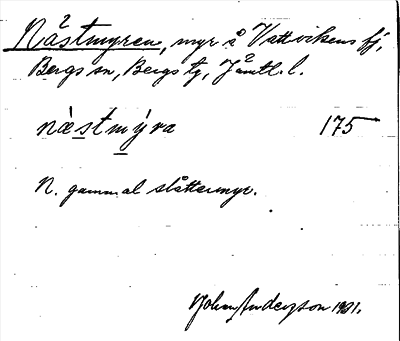 Nåstmyren, myr å Vattvikens fj,
Bergs sn, Bergs tg, Jämtl. l.
næ̀stmy̆ra 175
N. gammal slåttermyr.
Johan Anderzson 1931.